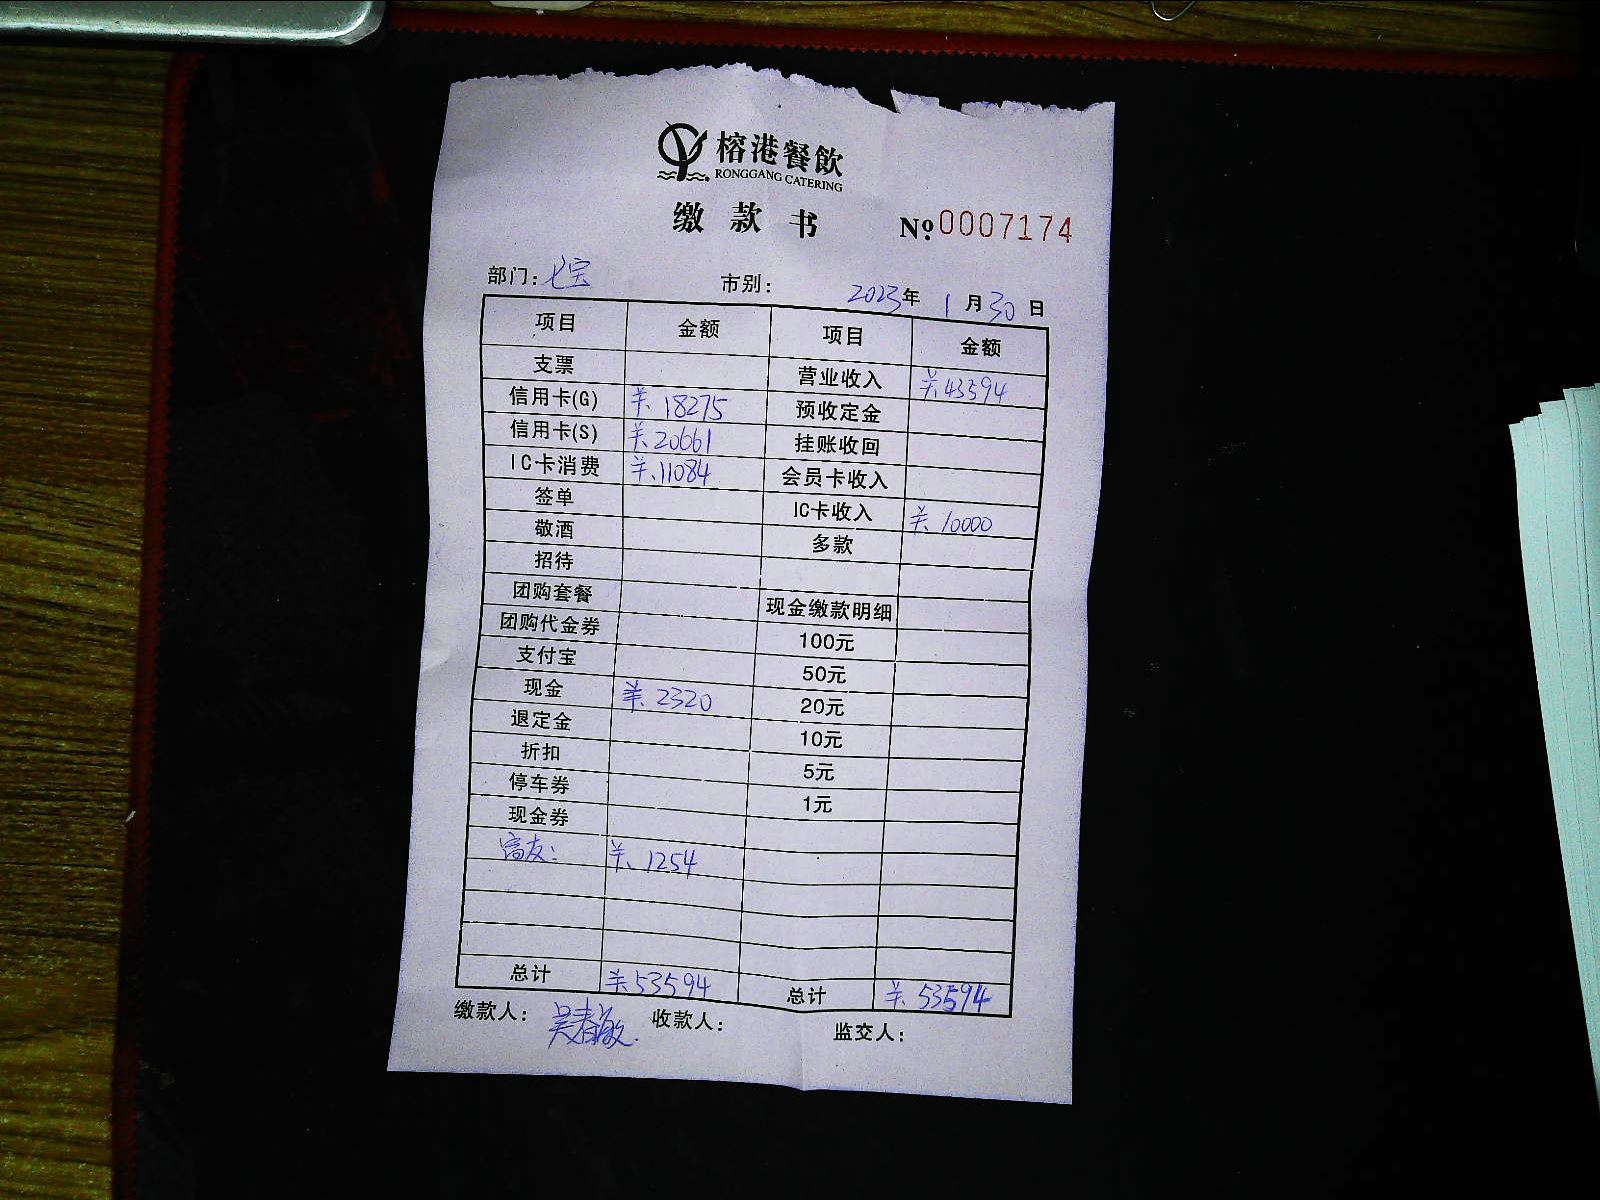 榕港餐飲
RONGGANG CATERING
缴款书 № 0007174
部门：七宝 市别： 2023年 1月30日
项目 金额 项目 金额
支票 营业收入 ¥43594
信用卡(G) ¥18275 预收定金
信用卡(S) ¥20661 挂账收回
IC卡消费 ¥11084 会员卡收入
签单 IC卡收入 ¥10000
敬酒 多款
招待
团购套餐 现金缴款明细
团购代金券 100元
支付宝 50元
现金 ¥2320 20元
退定金 10元
折扣 5元
停车券 1元
现金券
富友： ¥1254
总计 ¥53594 总计 ¥53594
缴款人：吴春敏 收款人： 监交人：